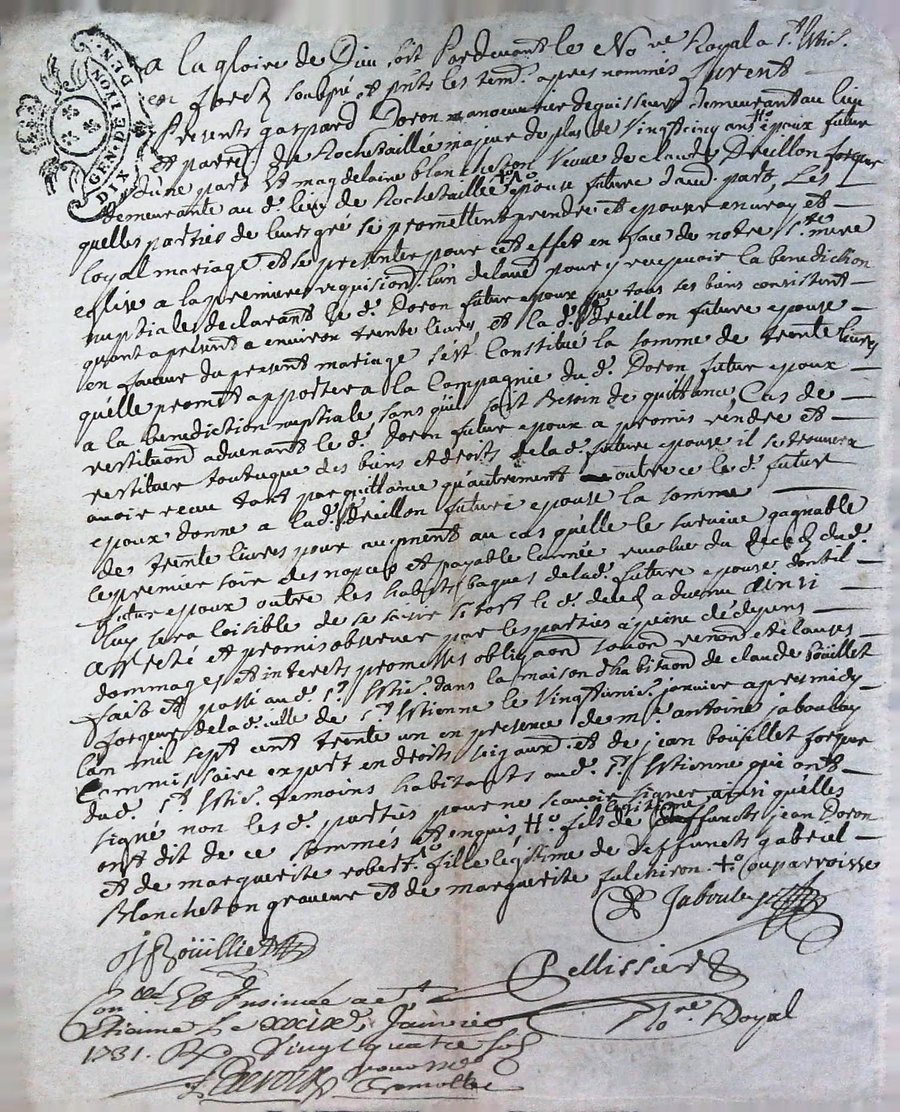 GEN. DE LYON
DIX DEN.
A la gloire de Dieu soit Pardevant le No.re Royal a S.t Estie.
en forez soubsé et pnts les tem. apres nommés furent
Presents gaspard Doron manoeuvrier demeurant au lieu
et parroe. de Rochetaillée majeur de plus de Vingtcinq ans +.o epoux futur
d'une part Et magdelaine blancheton Veuve de claude Dreillon forgeur
demeurante au d. lieu de Rochetaillée +.o epouse future d'aud. part, Les
quelles parties de leurs gré se promettent prendre et epouser en vray et
loyal mariage et se presenter pour cet effet en face de notre S.te mere
eglise a la premiere requision. l'un de laud. pour y recepvoir la benediction
nuptiale declarant le d. Doron futur epoux que tous ses biens consistent
quant a présent a environ trente livres et la d. Dreillon future epouse
en faveur du present mariage s'est Constitué la somme de trente livres
qu'elle promet apporter a la Compagnie du d. Doron futur epoux
a la benediction nuptiale sans qu'il soit Besoin de quittance, Cas de
restituon. advenant le d. doron futur epoux a promis rendre et
restituer tout ce que des biens et droits de la d. future epouse il se trouvera
avoir receu tant par quittance qu'autrement outre ce le d. futur
epoux donne a la d. Dreillon future epouse la somme
de trente livres pour augment au cas qu'elle le survive gagnable
le premier soir des nopces et payable l'année revolue du deced dud.
futur epoux outre les habits bagues de la d. future epouse dont il
luy sera loisible de se saisir sitost le d. deced advenu ainsi
arresté et promis observer par les parties a peine de depens
dommages et interets promesses obligaon. soumon. renon. et clauses
fait et passé aud. S.t Estie. dans la maison d'habitaon. de claude Boüillet
forgeur de la d. ville de S.t Estienne le Vingtunie. janvier apres midy
l'an mil sept cent trente un en presence de m.e antoine jaboulay
Commissaire expert en droits seigaux. et de jean bouillet forgeur
dud. S.t Estie. temoins habitants aud. S.t Estienne qui ont
signé non les d. parties pour ne scavoir signer ainsi qu'elles
ont dit de ce sommés et enquis +.o fils legitime de deffuncts jean Doron
et de marguerite robert +.o fille legitime de deffuncts gabriel
Blancheton graveur et de marguerite fulchiron. +.o
Jaboulay
J Boüilliet
Pellissier
No.re Royal
Con.ollé Et Insinuée a S.t
Etienne Le xxixe. Janvier
1731. R Vingt quatre sols